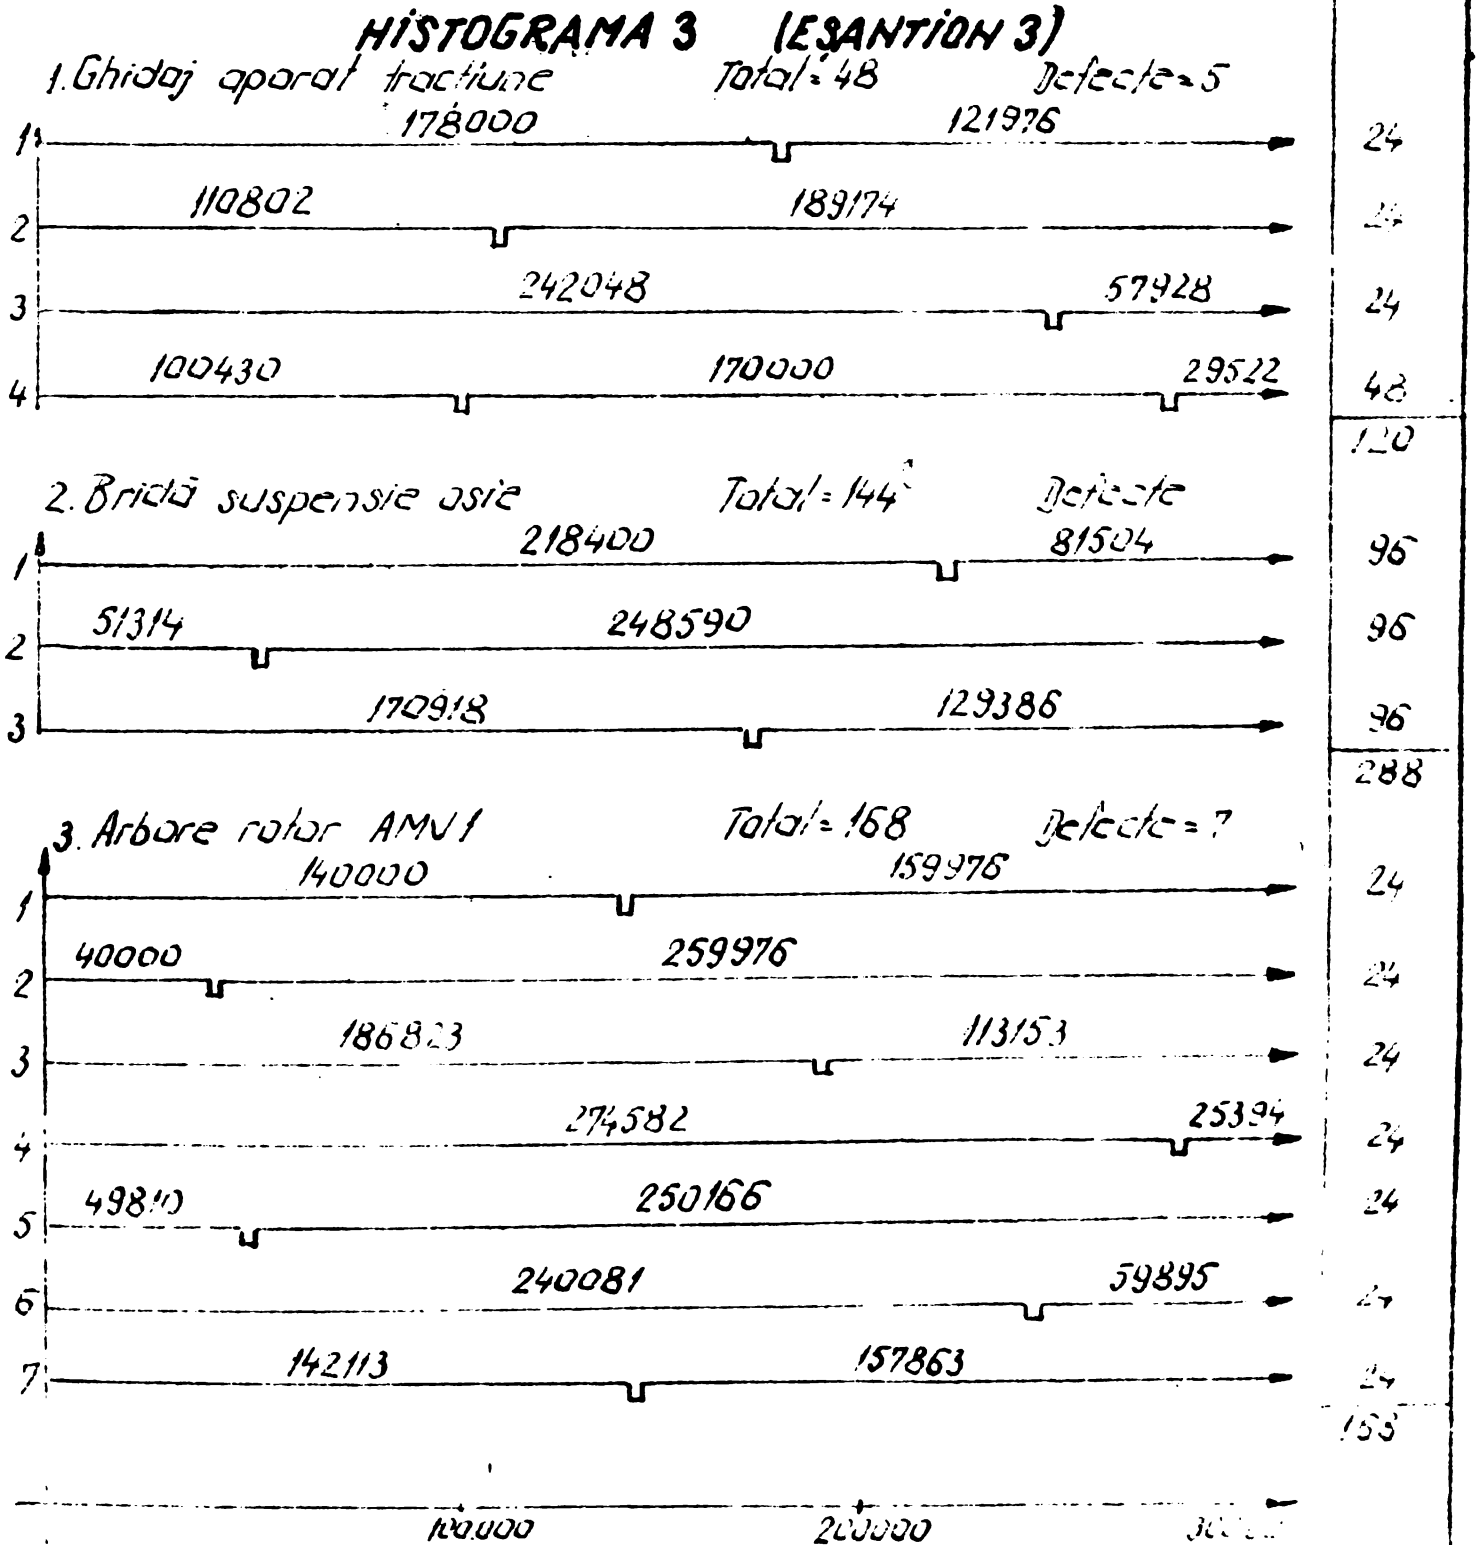 HISTOGRAMA 3 (EȘANTION 3)
1. Ghidaj aparat tracțiune Total = 48 Defecte = 5
178000 121976
1 24
110802 189174
2 24
242048 57928
3 24
100430 170000 29522
4 48
120
2. Bridă suspensie osie Total = 144 Defecte
218400 81504
1 96
51314 248590
2 96
170918 129386
3 96
288
3. Arbore rotor AMV1 Total = 168 Defecte = 7
140000 159976
1 24
40000 259976
2 24
186823 113153
3 24
274582 25394
4 24
49810 250166
5 24
240081 59895
6 24
142113 157863
7 24
168
100.000 200000